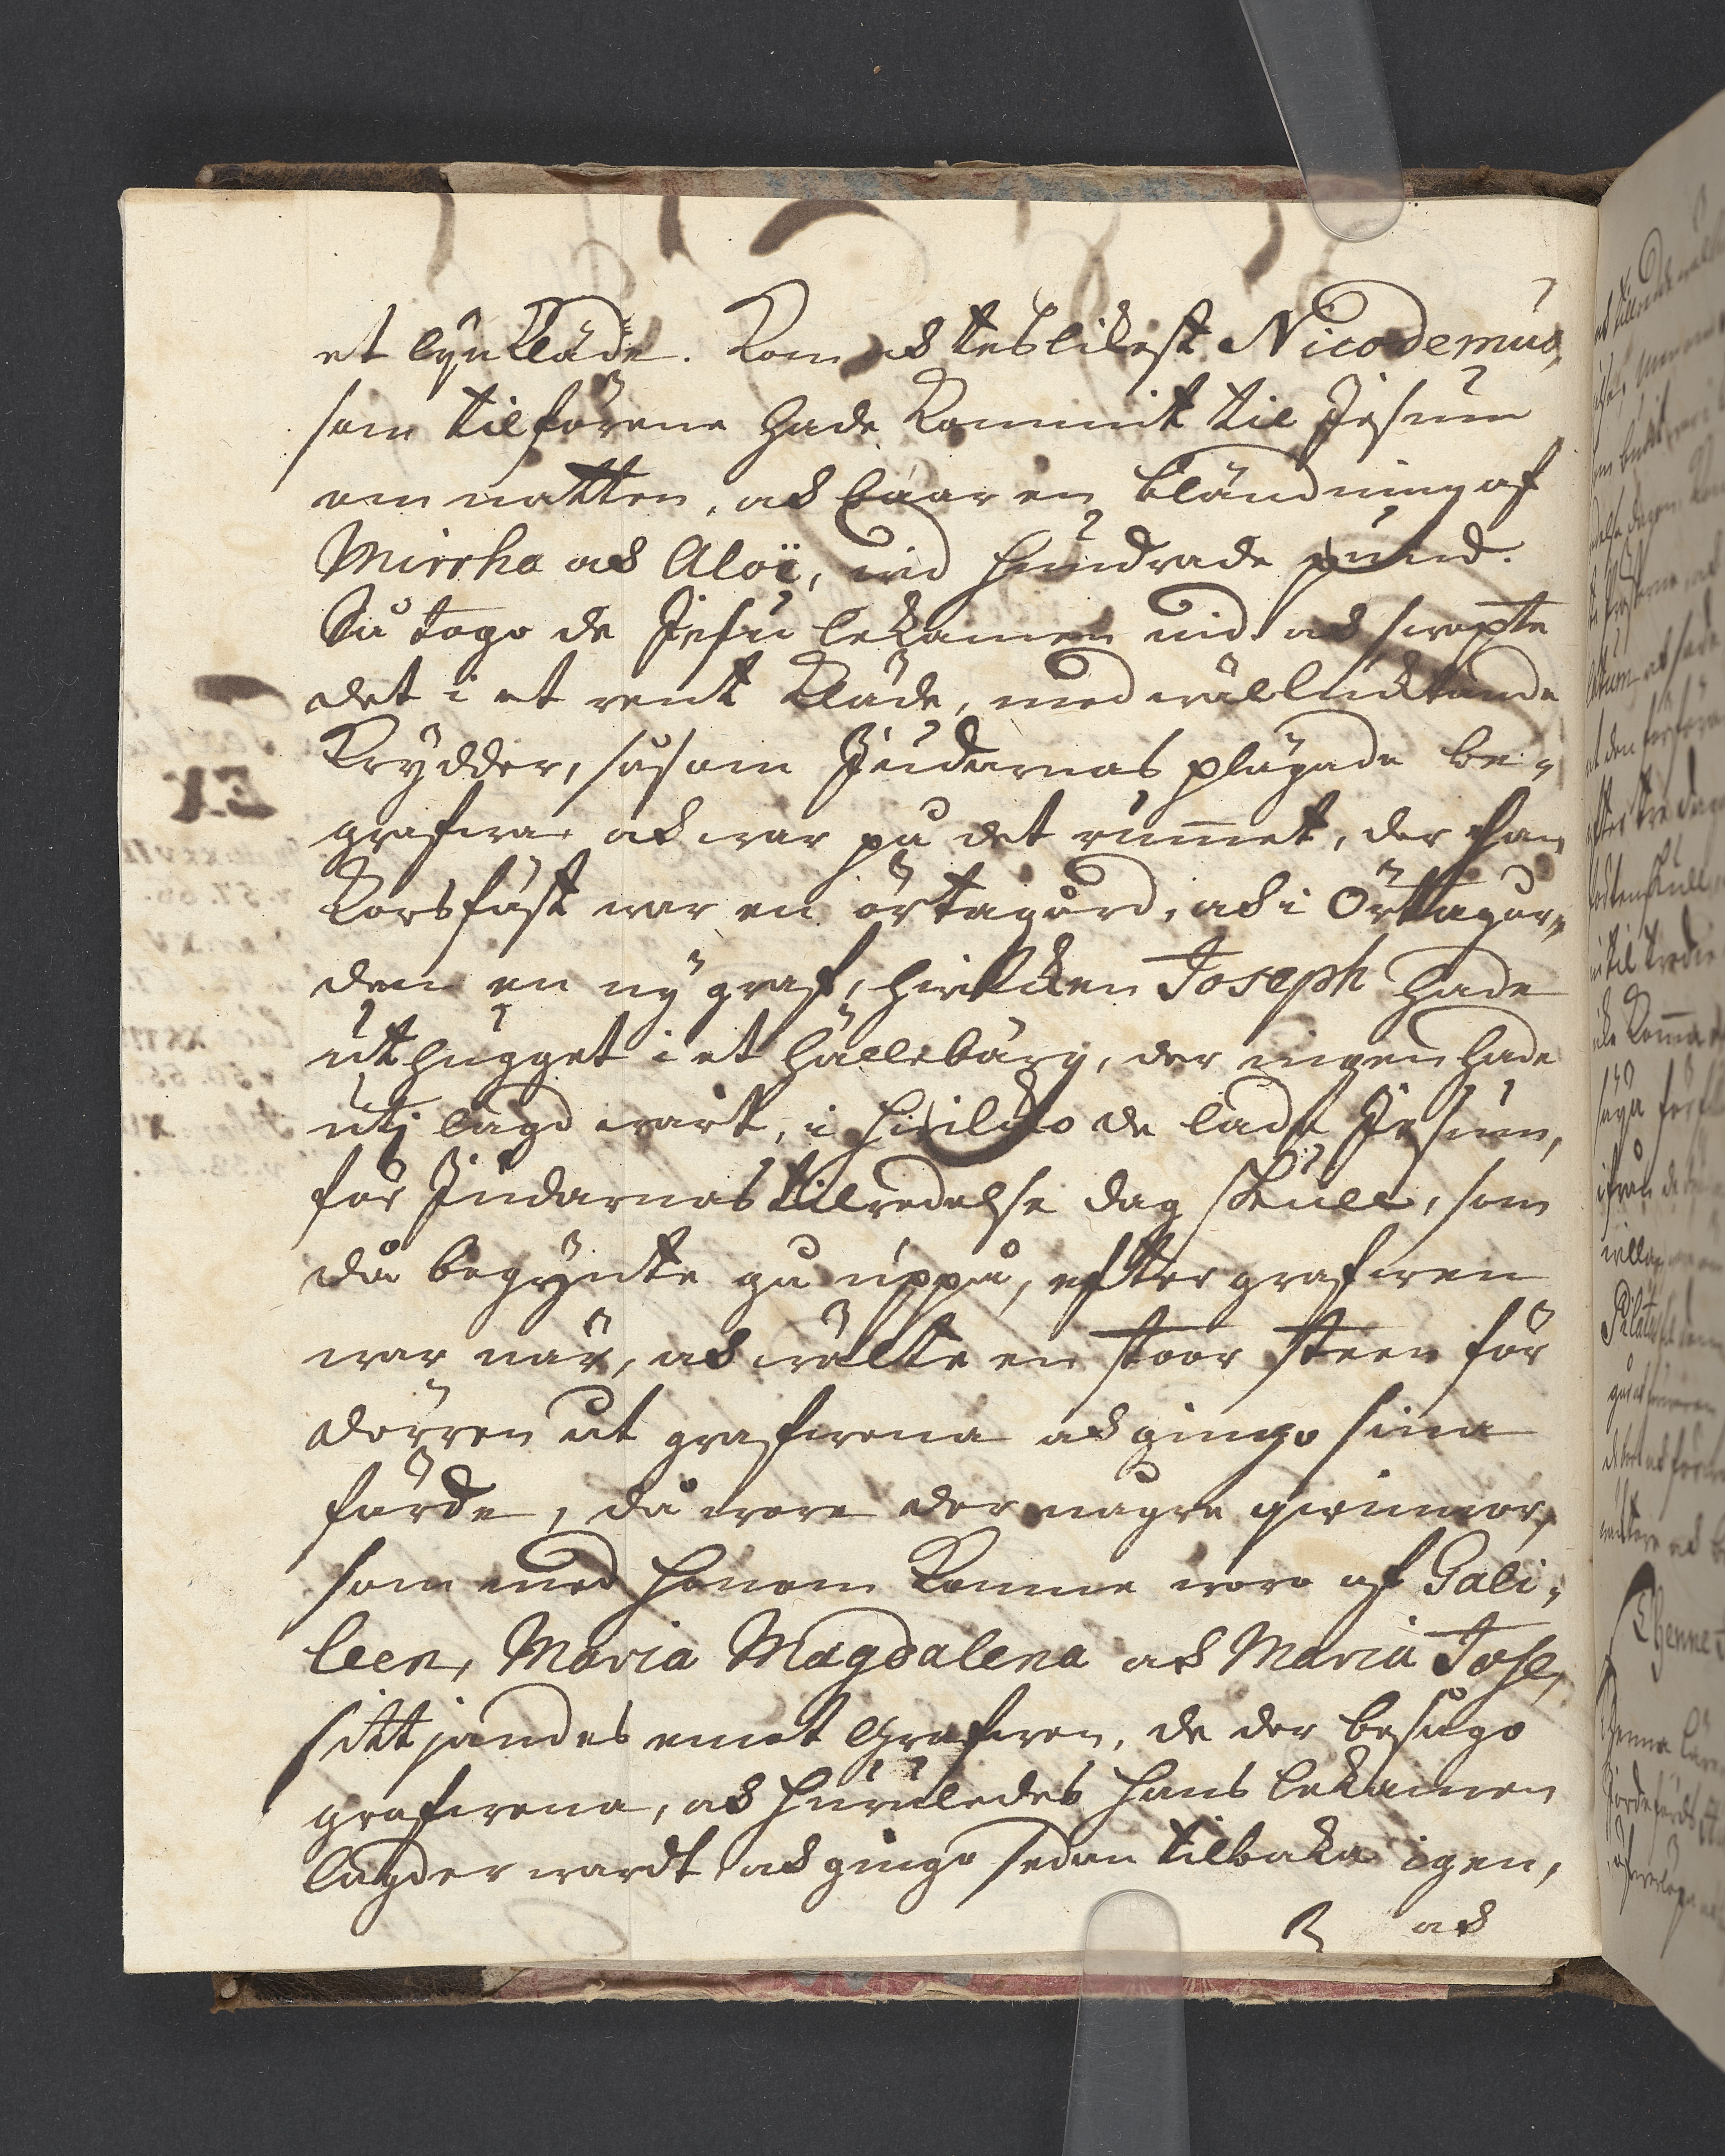 et lynkläde. Kom ock teslikest Nicodemus,
som tilförene hade kommit til Jesum
om natten, ock baar en bländning af
Mirrha ock Aloë, wid hundrade pund.
Så togo de Jesu lekamen nid ock swepte
det i et rent kläde, med wälluchtande
krydder, såsom Judarnas plägade be-
grafwa ock war på det rum̄et, der han
korsfäst war en örtagård, ock i Örttagår-
den en ny graf, hwilcken Joseph hade
uthugget i et hälleberg, der ingen hade
utj lagd warit, i hwilcko de lade Jesum,
för Judarnas tilredelse dag skull, som
då begynte gå uppå, efter grafwen
war när, ock wälte en stoor steen för
dörren åt grafwena ock gingo sina
färde, då wore der någre qwinnor,
som med honom komne woro af Gali-
leen, Maria Magdalena ock Maria Jose,
sittjandes emot Grafwen, de der besågo
grafwena, ock huruledes hans lekamen
lagder wardt ock gingo sedan tilbaka igen,
ock